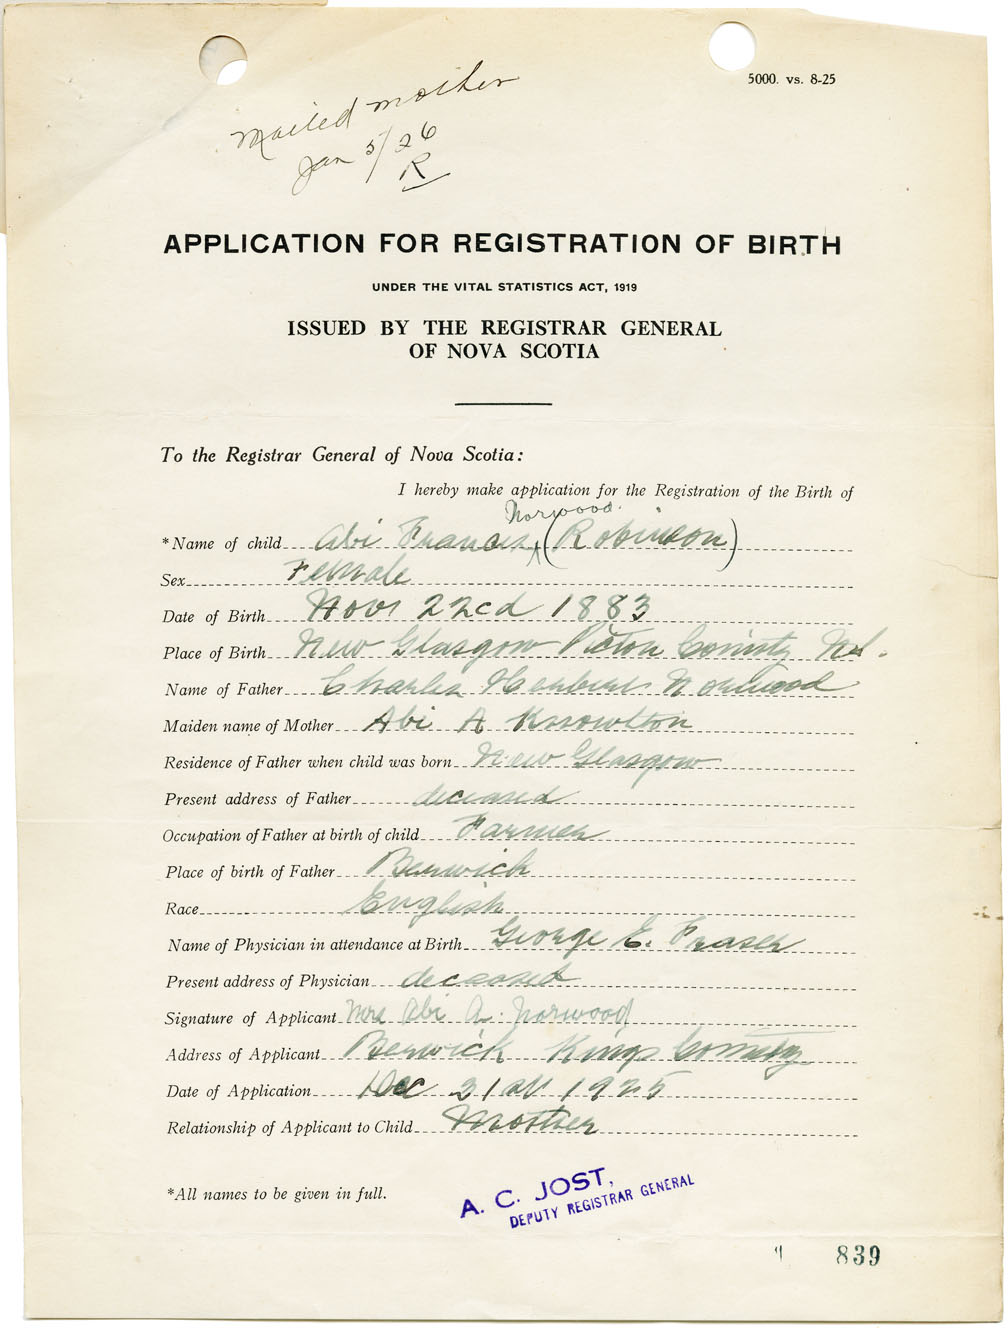 5000. vs. 8-25
Mailed mother
Jan 5/26
R
APPLICATION FOR REGISTRATION OF BIRTH
UNDER THE VITAL STATISTICS ACT, 1919
ISSUED BY THE REGISTRAR GENERAL
OF NOVA SCOTIA
To the Registrar General of Nova Scotia:
I hereby make application for the Registration of the Birth of
Norwood.
*Name of child Abi Francis (Robinson)
Sex Female
Date of Birth Nov 22cd 1883
Place of Birth New Glasgow Pictou County N.S.
Name of Father Charles Herbert Norwood
Maiden name of Mother Abi A Knowlton
Residence of Father when child was born New Glasgow
Present address of Father deceased
Occupation of Father at birth of child Farmer
Place of birth of Father Berwick
Race English
Name of Physician in attendance at Birth George E. Fraser
Present address of Physician deceased
Signature of Applicant Mrs Abi A. Norwood
Address of Applicant Berwick Kings County
Date of Application Dec 21st 1925
Relationship of Applicant to Child Mother
*All names to be given in full.
A. C. JOST,
DEPUTY REGISTRAR GENERAL
839